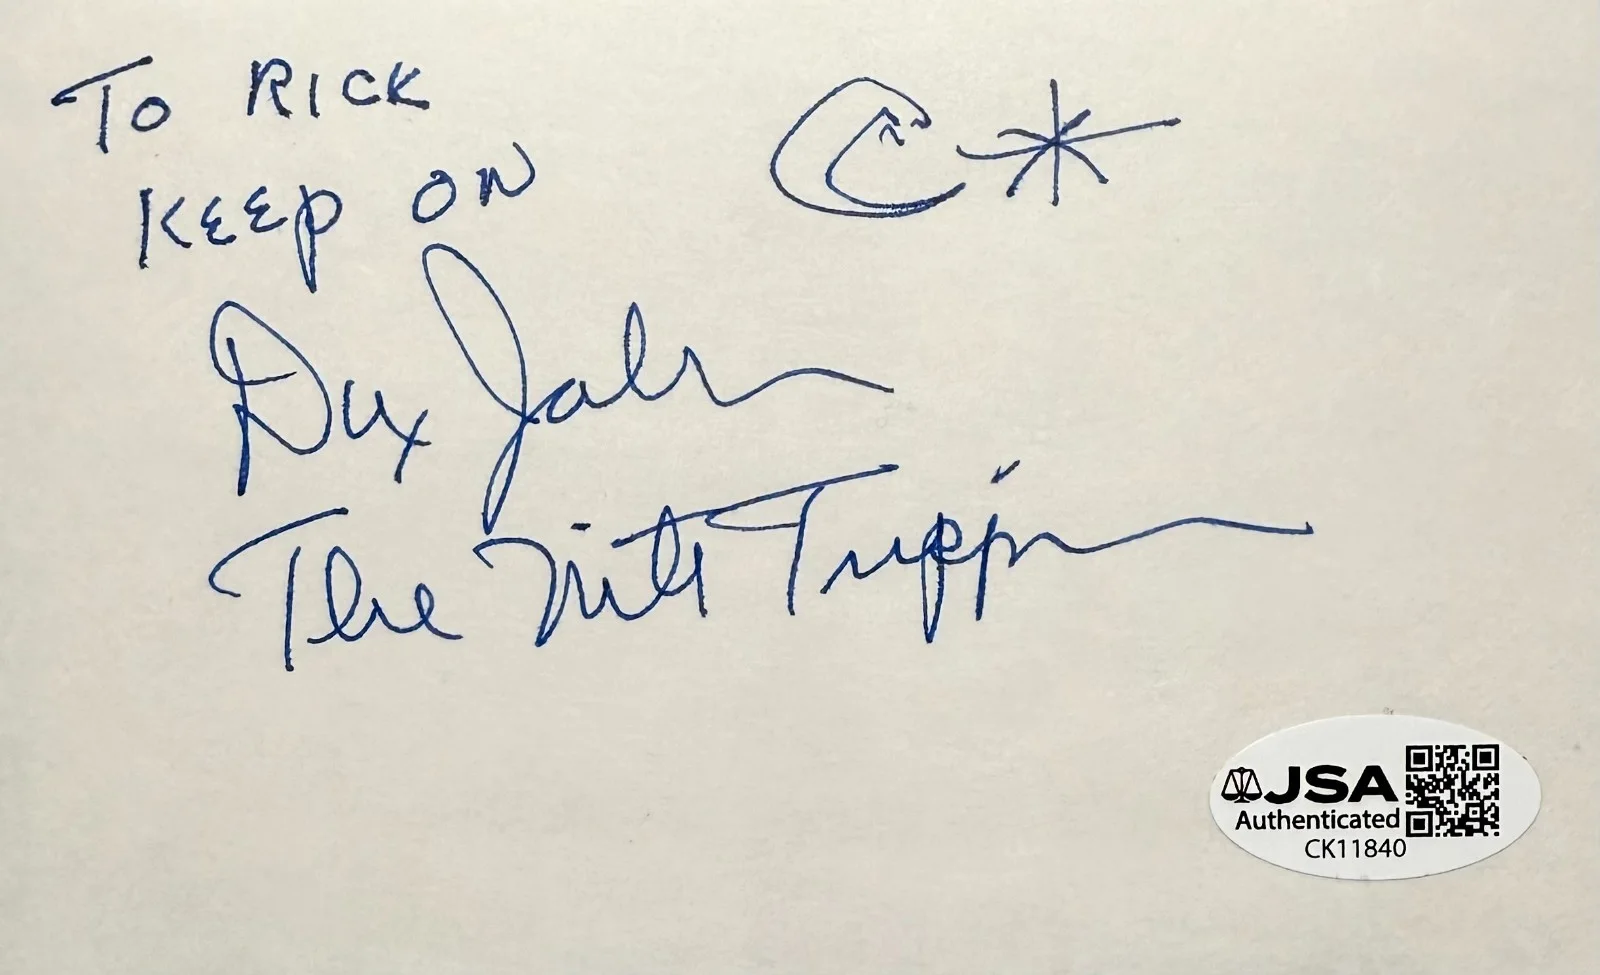 To RICK
KEEP ON
Dux Jahn
The Nite Trippin
JSA
Authenticated
CK11840